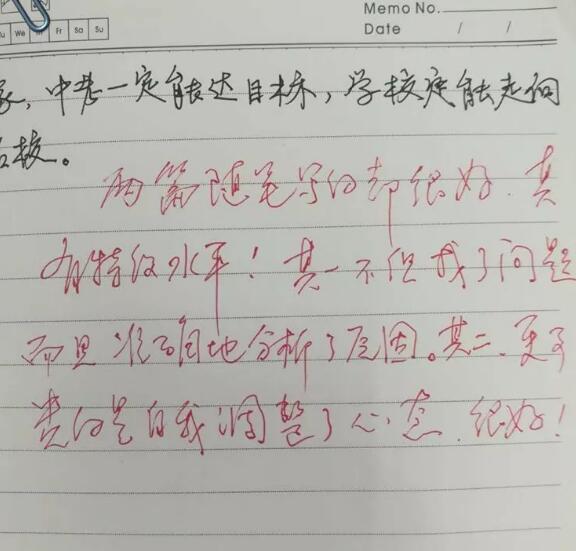 Memo No.
Date / /
We Fr Sa Su
家，中考一定能达目标，学校定能走向
名校。
两篇随笔写的都很好，真
有特级水平！其一不但找了问题
而且准确地分析了原因。其二、更可
贵的是自我调整了心态，很好！